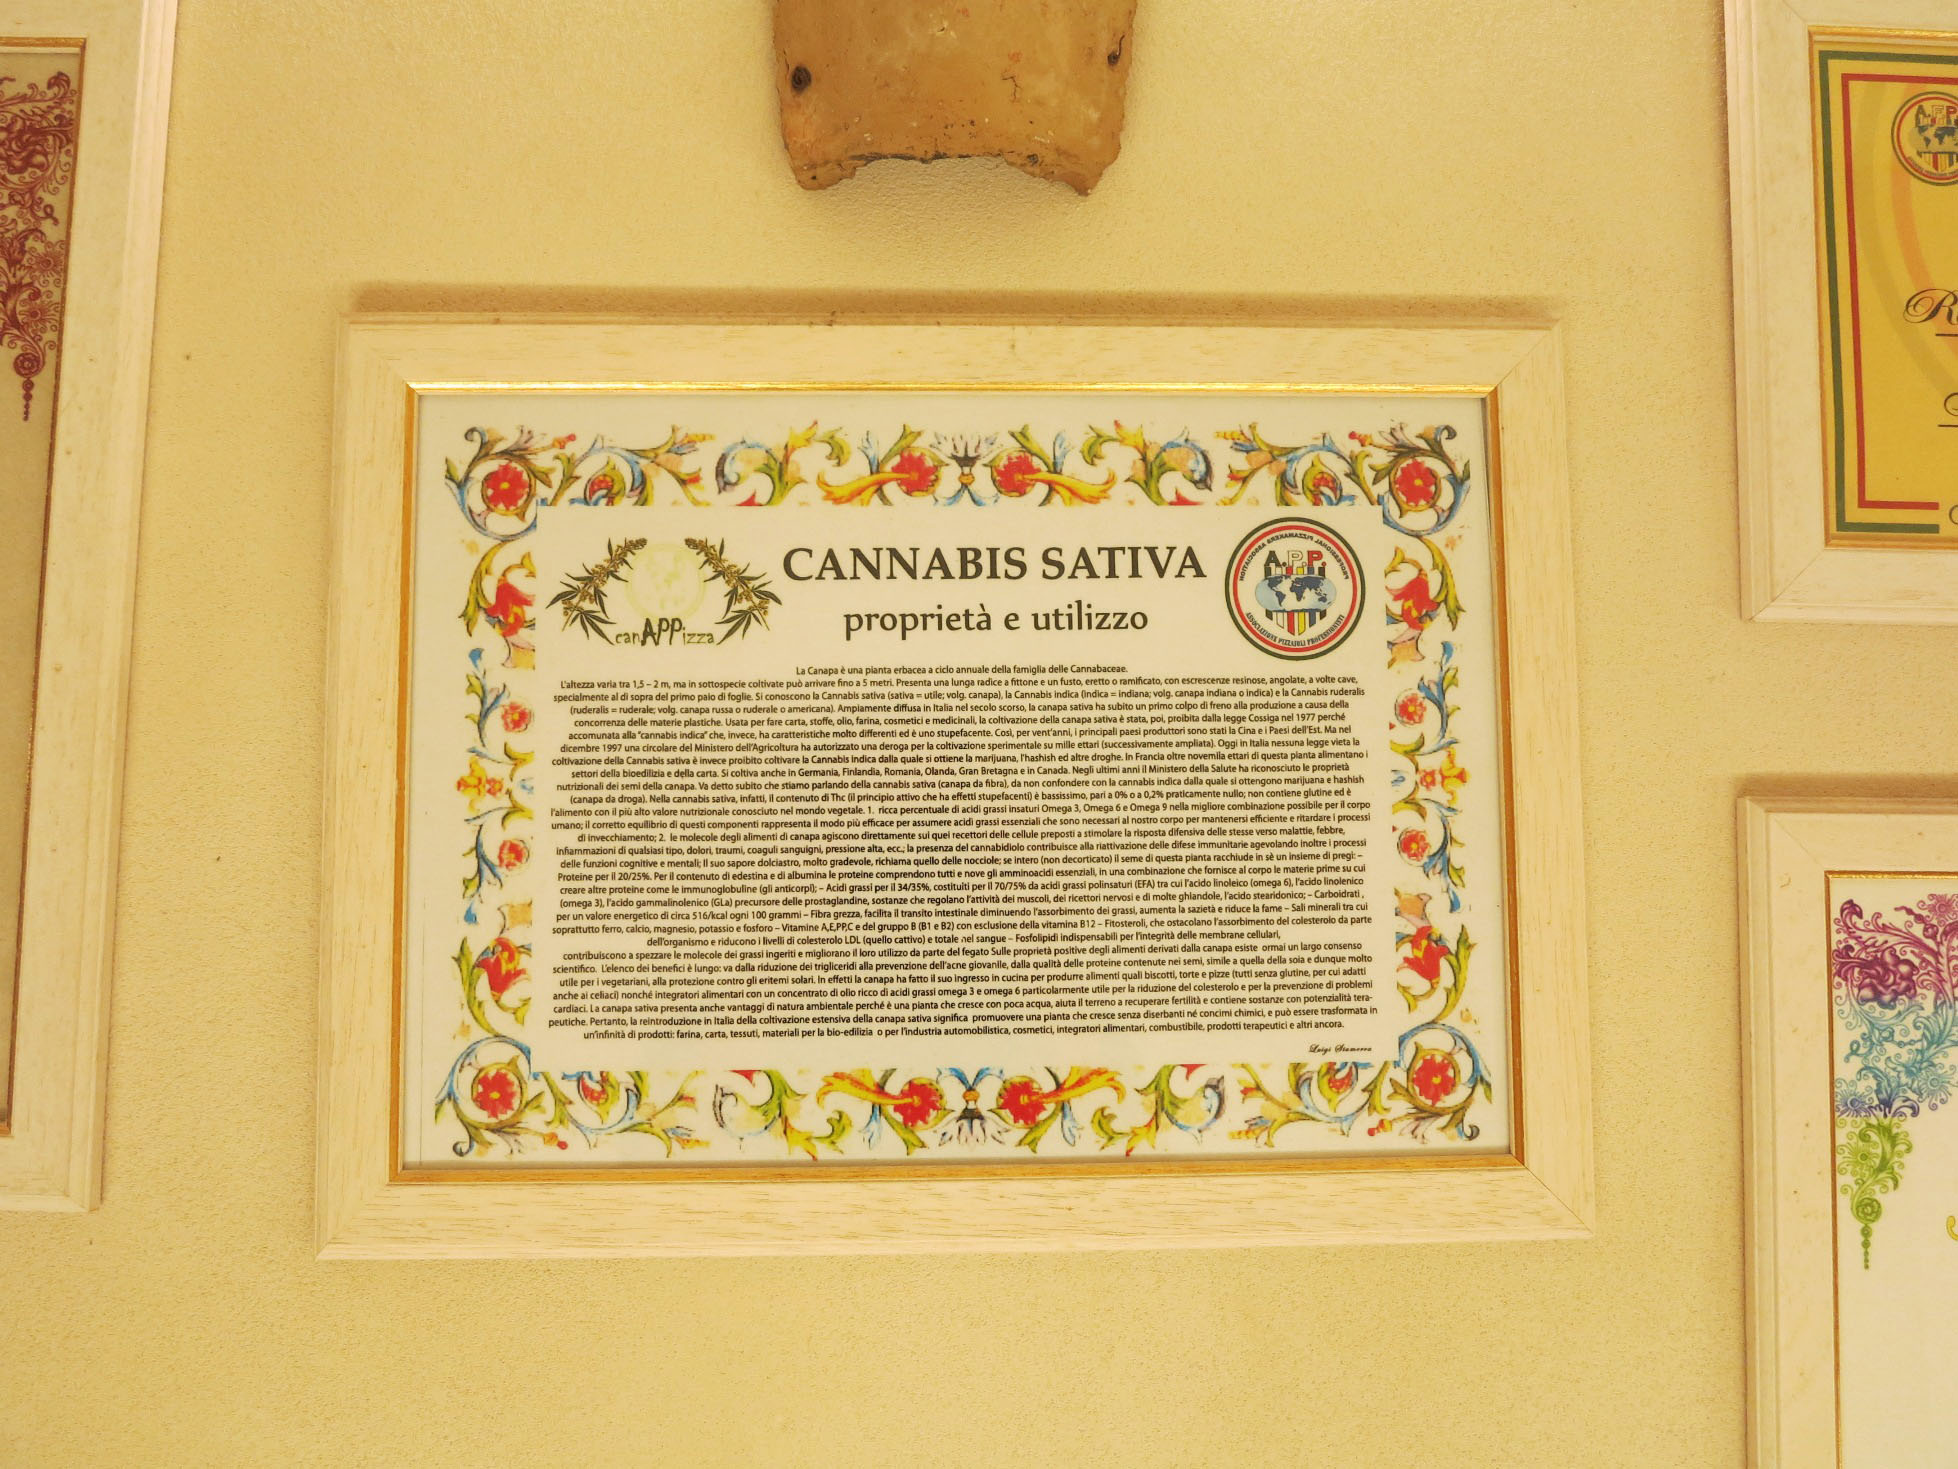 CANNABIS SATIVA
proprietà e utilizzo
canAPPizza
PROFESSIONAL PIZZAMAKERS ASSOCIATION
A.P.P.
ASSOCIAZIONE PIZZAIOLI PROFESSIONISTI
La Canapa è una pianta erbacea a ciclo annuale della famiglia delle Cannabaceae.
L'altezza varia tra 1,5 – 2 m, ma in sottospecie coltivate può arrivare fino a 5 metri. Presenta una lunga radice a fittone e un fusto, eretto o ramificato, con escrescenze resinose, angolate, a volte cave,
specialmente al di sopra del primo paio di foglie. Si conoscono la Cannabis sativa (sativa = utile; volg. canapa), la Cannabis indica (indica = indiana; volg. canapa indiana o indica) e la Cannabis ruderalis
(ruderalis = ruderale; volg. canapa russa o ruderale o americana). Ampiamente diffusa in Italia nel secolo scorso, la canapa sativa ha subito un primo colpo di freno alla produzione a causa della
concorrenza delle materie plastiche. Usata per fare carta, stoffe, olio, farina, cosmetici e medicinali, la coltivazione della canapa sativa è stata, poi, proibita dalla legge Cossiga nel 1977 perché
accomunata alla "cannabis indica" che, invece, ha caratteristiche molto differenti ed è uno stupefacente. Così, per vent'anni, i principali paesi produttori sono stati la Cina e i Paesi dell'Est. Ma nel
dicembre 1997 una circolare del Ministero dell'Agricoltura ha autorizzato una deroga per la coltivazione sperimentale su mille ettari (successivamente ampliata). Oggi in Italia nessuna legge vieta la
coltivazione della Cannabis sativa è invece proibito coltivare la Cannabis indica dalla quale si ottiene la marijuana, l'hashish ed altre droghe. In Francia oltre novemila ettari di questa pianta alimentano i
settori della bioedilizia e della carta. Si coltiva anche in Germania, Finlandia, Romania, Olanda, Gran Bretagna e in Canada. Negli ultimi anni il Ministero della Salute ha riconosciuto le proprietà
nutrizionali dei semi della canapa. Va detto subito che stiamo parlando della cannabis sativa (canapa da fibra), da non confondere con la cannabis indica dalla quale si ottengono marijuana e hashish
(canapa da droga). Nella cannabis sativa, infatti, il contenuto di Thc (il principio attivo che ha effetti stupefacenti) è bassissimo, pari a 0% o a 0,2% praticamente nullo; non contiene glutine ed è
l'alimento con il più alto valore nutrizionale conosciuto nel mondo vegetale. 1. ricca percentuale di acidi grassi insaturi Omega 3, Omega 6 e Omega 9 nella migliore combinazione possibile per il corpo
umano; il corretto equilibrio di questi componenti rappresenta il modo più efficace per assumere acidi grassi essenziali che sono necessari al nostro corpo per mantenersi efficiente e ritardare i processi
di invecchiamento; 2. le molecole degli alimenti di canapa agiscono direttamente sui quei recettori delle cellule preposti a stimolare la risposta difensiva delle stesse verso malattie, febbre,
infiammazioni di qualsiasi tipo, dolori, traumi, coaguli sanguigni, pressione alta, ecc.; la presenza del cannabidiolo contribuisce alla riattivazione delle difese immunitarie agevolando inoltre i processi
delle funzioni cognitive e mentali; Il suo sapore dolciastro, molto gradevole, richiama quello delle nocciole; se intero (non decorticato) il seme di questa pianta racchiude in sè un insieme di pregi: –
Proteine per il 20/25%. Per il contenuto di edestina e di albumina le proteine comprendono tutti e nove gli amminoacidi essenziali, in una combinazione che fornisce al corpo le materie prime su cui
creare altre proteine come le immunoglobuline (gli anticorpi); – Acidi grassi per il 34/35%, costituiti per il 70/75% da acidi grassi polinsaturi (EFA) tra cui l'acido linoleico (omega 6), l'acido linolenico
(omega 3), l'acido gammalinolenico (GLa) precursore delle prostaglandine, sostanze che regolano l'attività dei muscoli, dei ricettori nervosi e di molte ghiandole, l'acido stearidonico; – Carboidrati ,
per un valore energetico di circa 516/kcal ogni 100 grammi – Fibra grezza, facilita il transito intestinale diminuendo l'assorbimento dei grassi, aumenta la sazietà e riduce la fame – Sali minerali tra cui
soprattutto ferro, calcio, magnesio, potassio e fosforo – Vitamine A,E,PP,C e del gruppo B (B1 e B2) con esclusione della vitamina B12 – Fitosteroli, che ostacolano l'assorbimento del colesterolo da parte
dell'organismo e riducono i livelli di colesterolo LDL (quello cattivo) e totale nel sangue – Fosfolipidi indispensabili per l'integrità delle membrane cellulari,
contribuiscono a spezzare le molecole dei grassi ingeriti e migliorano il loro utilizzo da parte del fegato Sulle proprietà positive degli alimenti derivati dalla canapa esiste ormai un largo consenso
scientifico. L'elenco dei benefici è lungo: va dalla riduzione dei trigliceridi alla prevenzione dell'acne giovanile, dalla qualità delle proteine contenute nei semi, simile a quella della soia e dunque molto
utile per i vegetariani, alla protezione contro gli eritemi solari. In effetti la canapa ha fatto il suo ingresso in cucina per produrre alimenti quali biscotti, torte e pizze (tutti senza glutine, per cui adatti
anche ai celiaci) nonché integratori alimentari con un concentrato di olio ricco di acidi grassi omega 3 e omega 6 particolarmente utile per la riduzione del colesterolo e per la prevenzione di problemi
cardiaci. La canapa sativa presenta anche vantaggi di natura ambientale perché è una pianta che cresce con poca acqua, aiuta il terreno a recuperare fertilità e contiene sostanze con potenzialità tera-
peutiche. Pertanto, la reintroduzione in Italia della coltivazione estensiva della canapa sativa significa promuovere una pianta che cresce senza diserbanti né concimi chimici, e può essere trasformata in
un'infinità di prodotti: farina, carta, tessuti, materiali per la bio-edilizia o per l'industria automobilistica, cosmetici, integratori alimentari, combustibile, prodotti terapeutici e altri ancora.
Luigi Stamerra